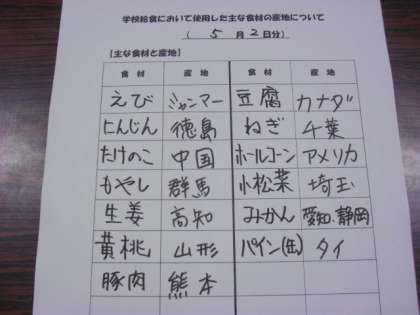 学校給食において使用した主な食材の産地について
( 5 月 2 日分)
【主な食材と産地】
食材 産地 食材 産地
えび ミャンマー 豆腐 カナダ
にんじん 徳島 ねぎ 千葉
たけのこ 中国 ホールコーン アメリカ
もやし 群馬 小松菜 埼玉
生姜 高知 みかん 愛知、静岡
黄桃 山形 パイン(缶) タイ
豚肉 熊本